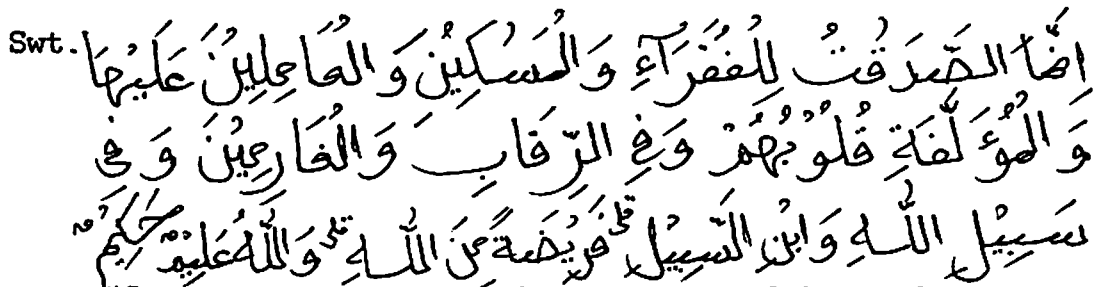 Swt. اِنَّمَا الصَّدَقٰتُ لِلْفُقَرَآءِ وَالْمَسٰكِيْنِ وَالْعَامِلِيْنَ عَلَيْهَا
وَالْمُؤَلَّفَةِ قُلُوْبُهُمْ وَفِى الرِّقَابِ وَالْغَارِمِيْنَ وَفِى
سَبِيْلِ اللّٰهِ وَابْنِ السَّبِيْلِ ۗ فَرِيْضَةً مِّنَ اللّٰهِ ۗ وَاللّٰهُ عَلِيْمٌ حَكِيْمٌ